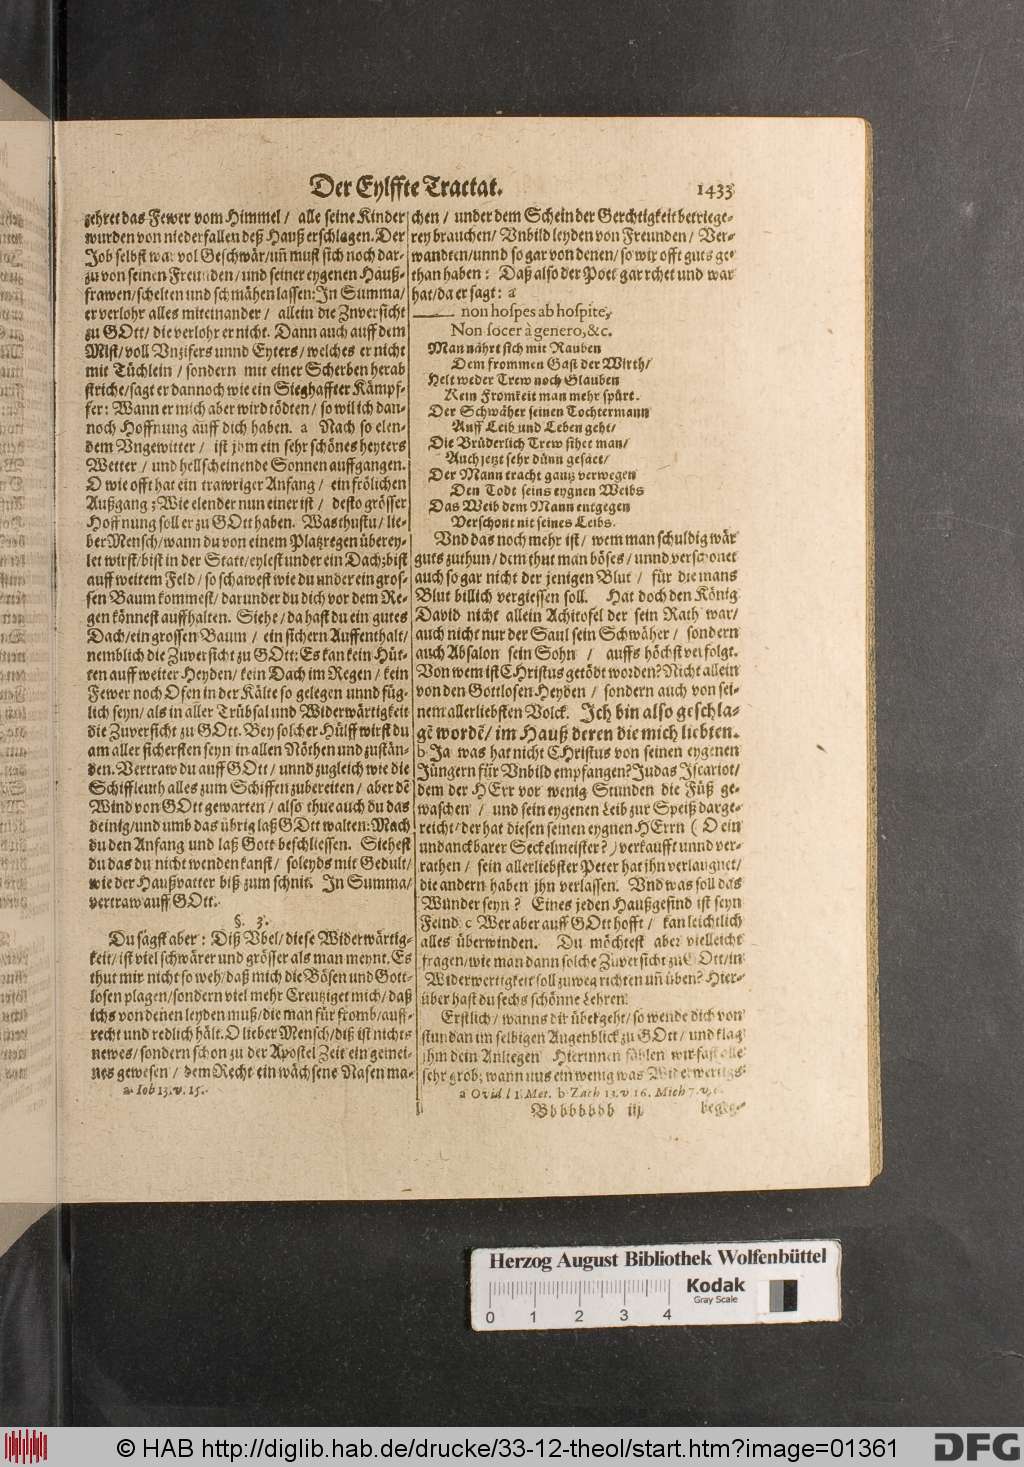 Der Eylffte Tractat.
1433
zehret das Fewer vom Himmel / alle seine Kinder
wurden von niederfallen deß Hauß erschlagen. Der
Job selbst war vol Geschwär/ uñ must sich noch dar-
zu von seinen Freunden / und seiner eygenen Hauß-
frawen/schelten und schmähen lassen: In Summa/
er verlohr alles miteinander / allein die Zuversicht
zu GOtt/ die verlohr er nicht. Dann auch auff dem
Mist/ voll Unzifers unnd Eyters/ welches er nicht
mit Tüchlein / sondern mit einer Scherben herab
striche/sagt er dannoch wie ein Sieghaffter Kämpf-
fer: Wann er mich aber wird tödten / so wil ich dan-
noch Hoffnung auff dich haben. a Nach so elen-
dem Ungewitter / ist jhm ein sehr schönes heyters
Wetter / und hellscheinende Sonnen auffgangen.
O wie offt hat ein trawriger Anfang / ein frölichen
Außgang; Wie elender nun einer ist / desto grösser
Hoffnung soll er zu GOtt haben. Was thustu / lie-
ber Mensch/wann du von einem Platzregen überey-
let wirst/bist in der Statt/eylest under ein Dach; bist
auff weitem Feld / so schawest wie du under ein gros-
sen Baum kommest/ darunder du dich vor dem Re-
gen könnest auffhalten. Siehe / da hast du ein gutes
Dach/ein grossen Baum / ein sichern Auffenthalt/
nemblich die Zuversicht zu GOtt: Es kan kein Hüt-
ten auff weiter Heyden/ kein Dach im Regen / kein
Fewer noch Ofen in der Kälte so gelegen unnd füg-
lich seyn/ als in aller Trübsal und Widerwärtigkeit
die Zuversicht zu GOtt. Bey solcher Hülff wirst du
am aller sichersten seyn in allen Nöthen und zustän-
den. Vertraw du auff GOtt / unnd zugleich wie die
Schiffleuth alles zum Schiffen zubereiten / aber dē
Wind von GOtt gewarten / also thue auch du das
deinig/und umb das übrig laß GOtt walten: Mach
du den Anfang und laß Gott beschliessen. Siehest
du das du nicht wenden kanst / so leyds mit Gedult/
wie der Haußvatter biß zum schnit. In Summa/
vertraw auff GOtt.
§. 3.
Du sagst aber: Diß Ubel/ diese Widerwärtig-
keit/ ist viel schwärer und grösser als man meynt. Es
thut mir nicht so weh/ daß mich die Bösen und Gott-
losen plagen/sondern viel mehr Creutziget mich/ daß
ichs von denen leyden muß/die man für fromb/auff-
recht und redlich hält. O lieber Mensch/ diß ist nichts
newes/ sondern schon zu der Apostel Zeit ein gemei-
nes gewesen / dem Recht ein wächsene Nasen ma-
a Iob 13. v. 15.
chen / under dem Schein der Gerchtigkeit betriege-
rey brauchen/ Unbild leyden von Freunden / Ver-
wandten/unnd so gar von denen/ so wir offt guts ge-
than haben: Daß also der Poet gar rchet und war
hat/da er sagt: a
—— non hospes ab hospite,
Non socer à genero, &c.
Man nährt sich mit Rauben
Dem frommen Gast der Wirth/
Helt weder Trew noch Glauben
Kein Fromkeit man mehr spürt.
Der Schwäher seinen Tochtermann
Auff Leib und Leben geht/
Die Brüderlich Trew sihet man/
Auch jetzt sehr dünn gesäet/
Der Mann tracht gantz verwegen
Den Todt seins eygnen Weibs
Das Weib dem Mann entgegen
Verschont nit seines Leibs.
Und das noch mehr ist / wem man schuldig wär
guts zuthun / dem thut man böses / unnd verschonet
auch so gar nicht der jenigen Blut / für die mans
Blut billich vergiessen soll. Hat doch den König
David nicht allein Achitofel der sein Rath war/
auch nicht nur der Saul sein Schwäher / sondern
auch Absalon sein Sohn / auffs höchst verfolgt.
Von wem ist CHristus getödt worden? Nicht allein
von den Gottlosen Heyden / sondern auch von sei-
nem allerliebsten Volck. Ich bin also geschla-
gē wordē/ im Hauß deren die mich liebten.
b Ja was hat nicht CHristus von seinen eygenen
Jüngern für Unbild empfangen? Judas Iscariot/
dem der HErr vor wenig Stunden die Füß ge-
waschen / und sein eygenen Leib zur Speiß darge-
reicht/ der hat diesen seinen eygnen HErrn ( O ein
undanckbarer Seckelmeister? ) verkaufft unnd ver-
rathen / sein allerliebster Peter hat ihn verlaugnet/
die andern haben jhn verlassen. Und was soll das
Wunder seyn? Eines jeden Haußgesind ist seyn
Feind. c Wer aber auff GOtt hofft / kan leichtlich
alles überwinden. Du möchtest aber vielleicht
fragen/ wie man dann solche Zuversicht zu GOtt/in
Widerwertigkeit soll zuweg richten uñ üben? Hier-
über hast du sechs schönne Lehren.
Erstlich / wanns dir übel geht/ so wende dich von
stundan im selbigen Augenblick zu GOtt / und klag
jhm dein Anliegen Hierinnen fählen wir fast alle
sehr grob; wann uns ein wenig was Widerwertigs
a Ovid l 1. Met. b Zach 13. v 16. Mich 7. v.
Bbbbbbbb iij
begeg-
Herzog August Bibliothek Wolfenbüttel
Kodak
Gray Scale
0 1 2 3 4
© HAB http://diglib.hab.de/drucke/33-12-theol/start.htm?image=01361
DFG